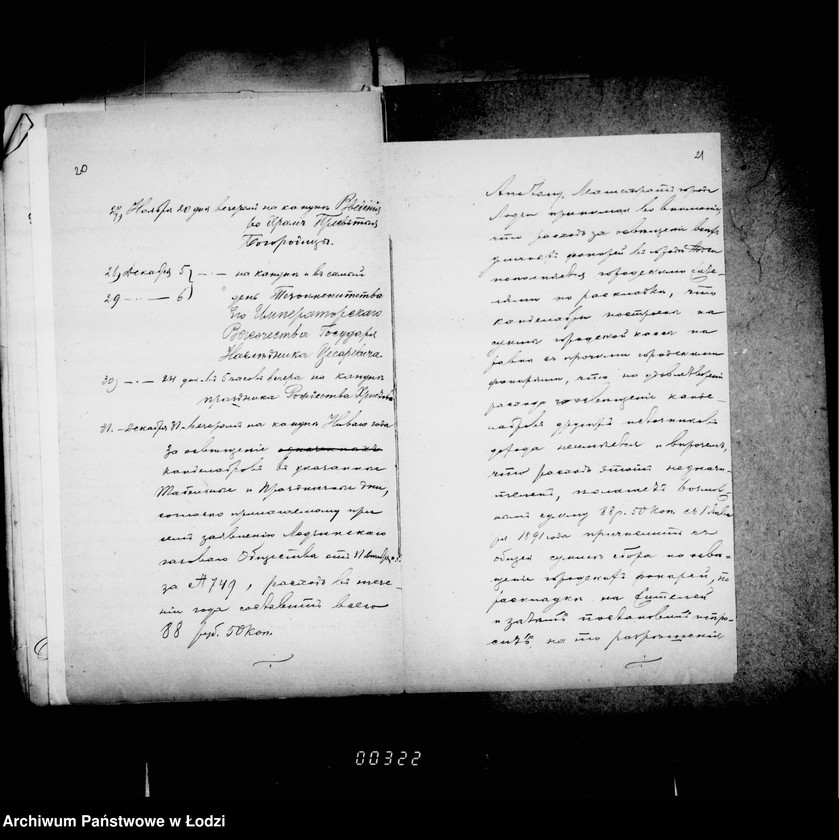 20
27, Ноября 20 дня вечеромъ на канунѣ Введенія
во Храмъ Пресвятыя
Богородицы.
28, Декабря 5 — на канунѣ и въ самый
29 — 6 день Тезоименитства
Его Императорскаго
Высочества Государя
Наслѣдника Цесаревича.
30, — 24 дня въ 6 часовъ вечера на канунѣ
праздника Рождества Христова
31. — Декабря 31 вечеромъ на канунѣ Новаго года
За освѣщеніе
канделябровъ въ указанные
Табельные и Праздничные дни,
согласно прилагаемому при
семъ заявленію Лодзинскаго
газоваго Общества отъ 31
за № 749, расходъ въ тече-
ніи года составитъ всего
88 руб. 50 коп.
21
А потому, Магистратъ города
Лодзи принимая во вниманіе
что расходъ за освѣщеніе
фонарей въ городѣ
пополняется городскими жите-
лями по раскладкѣ, что
канделябры построены на
счетъ городской кассы на
равнѣ съ прочими городскими
фонарями, что на удовлетвореніе
расхода освѣщенія канде-
лябровъ другихъ источниковъ
города неимѣется и впрочемъ,
что расходъ этотъ незначи-
теленъ, полагаетъ возмож-
нымъ сумму 88 р. 50 коп. съ 1 Янва-
ря 1891 года причислить къ
общей суммѣ сбора на освѣ-
щеніе городскихъ фонарей, по
раскладкѣ на жителей
и затѣмъ постановилъ испро-
сить на то разрѣшенія
00322
Archiwum Państwowe w Łodzi